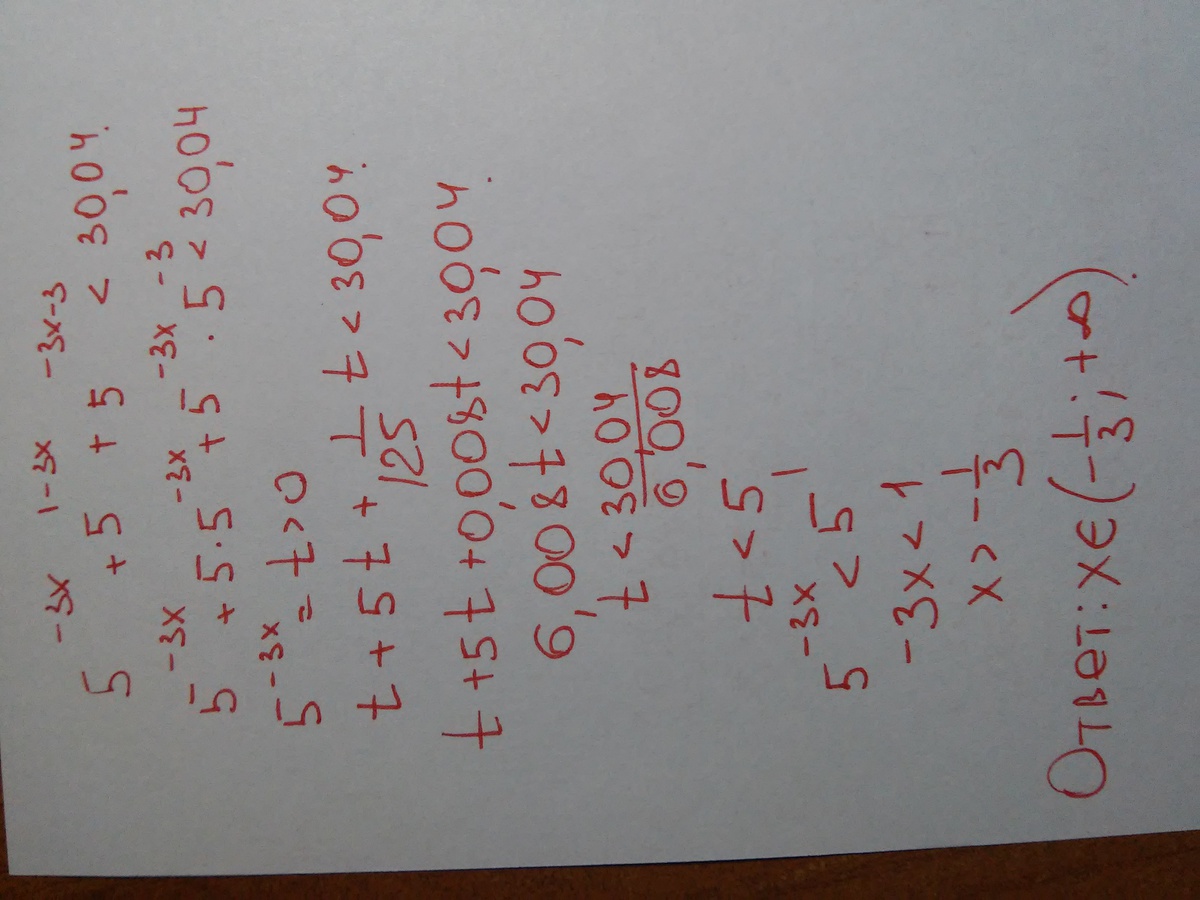 5^{-3x} + 5^{1-3x} + 5^{-3x-3} < 30,04.
5^{-3x} + 5·5^{-3x} + 5^{-3x} · 5^{-3} < 30,04
5^{-3x} = t > 0
t + 5t + \frac{1}{125} t < 30,04.
t + 5t + 0,008t < 30,04.
6,008t < 30,04
t < \frac{30,04}{6,008}
t < 5
5^{-3x} < 5^{1}
-3x < 1
x > -\frac{1}{3}
Ответ: x ∈ (-\frac{1}{3}; +∞).